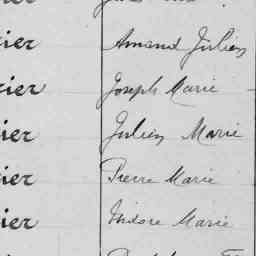 ier Amand Julien
ier Joseph Marie
ier Julien Marie
ier Pierre Marie
ier Isidore Marie